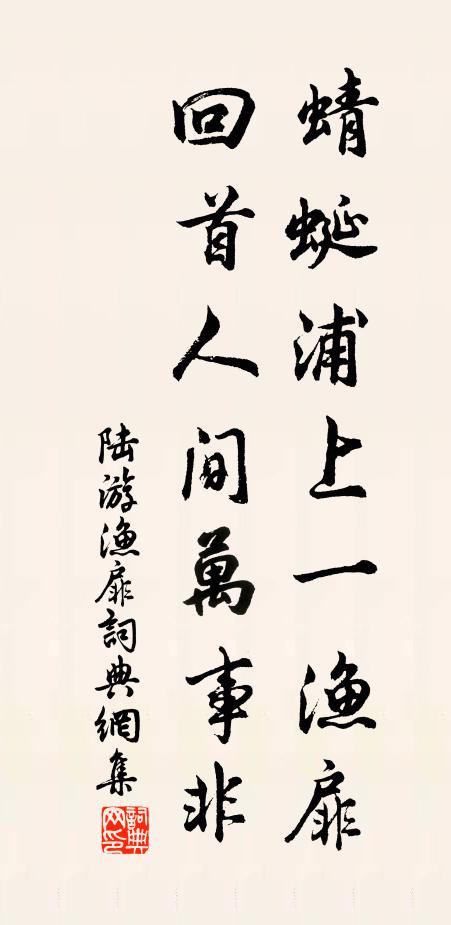 蜻蜓浦上一漁扉
回首人間萬事非
陆游漁扉詞典網集
詞典網印